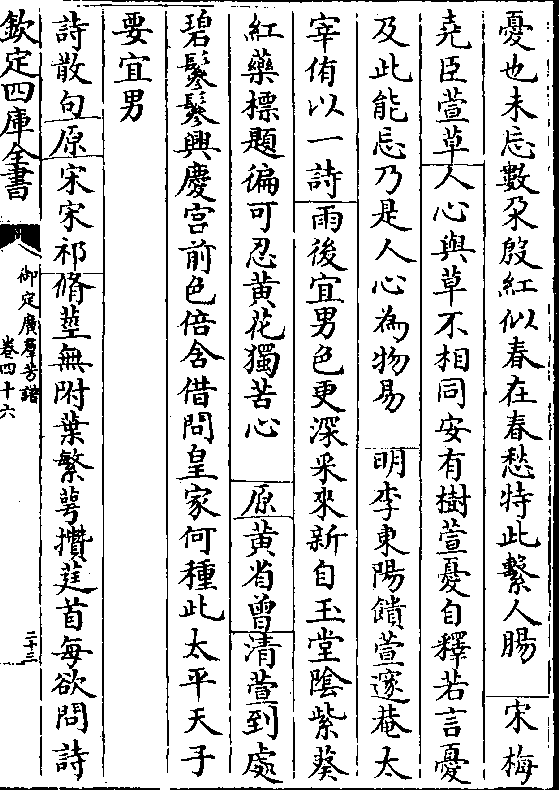 憂也未忘數朶殷紅似春在春愁特此繫人腸　宋梅
堯臣萱草人心與草不相同安有樹萱憂自釋若言憂
及此能忘乃是人心為物易　明李東陽饋萱邃菴太
宰侑以一詩雨後宜男色更深采來新自玉堂陰紫葵
紅藥標題徧可忍黄花獨苦心　原黄省曾清萱到處
碧鬖鬖興慶宫前色倍含借問皇家何種此太平天子
要宜男
詩散句原宋宋祁脩莖無附葉繁萼攢莛首每欲問詩
欽定四庫全書
御定廣羣芳譜
卷四十六
二十三